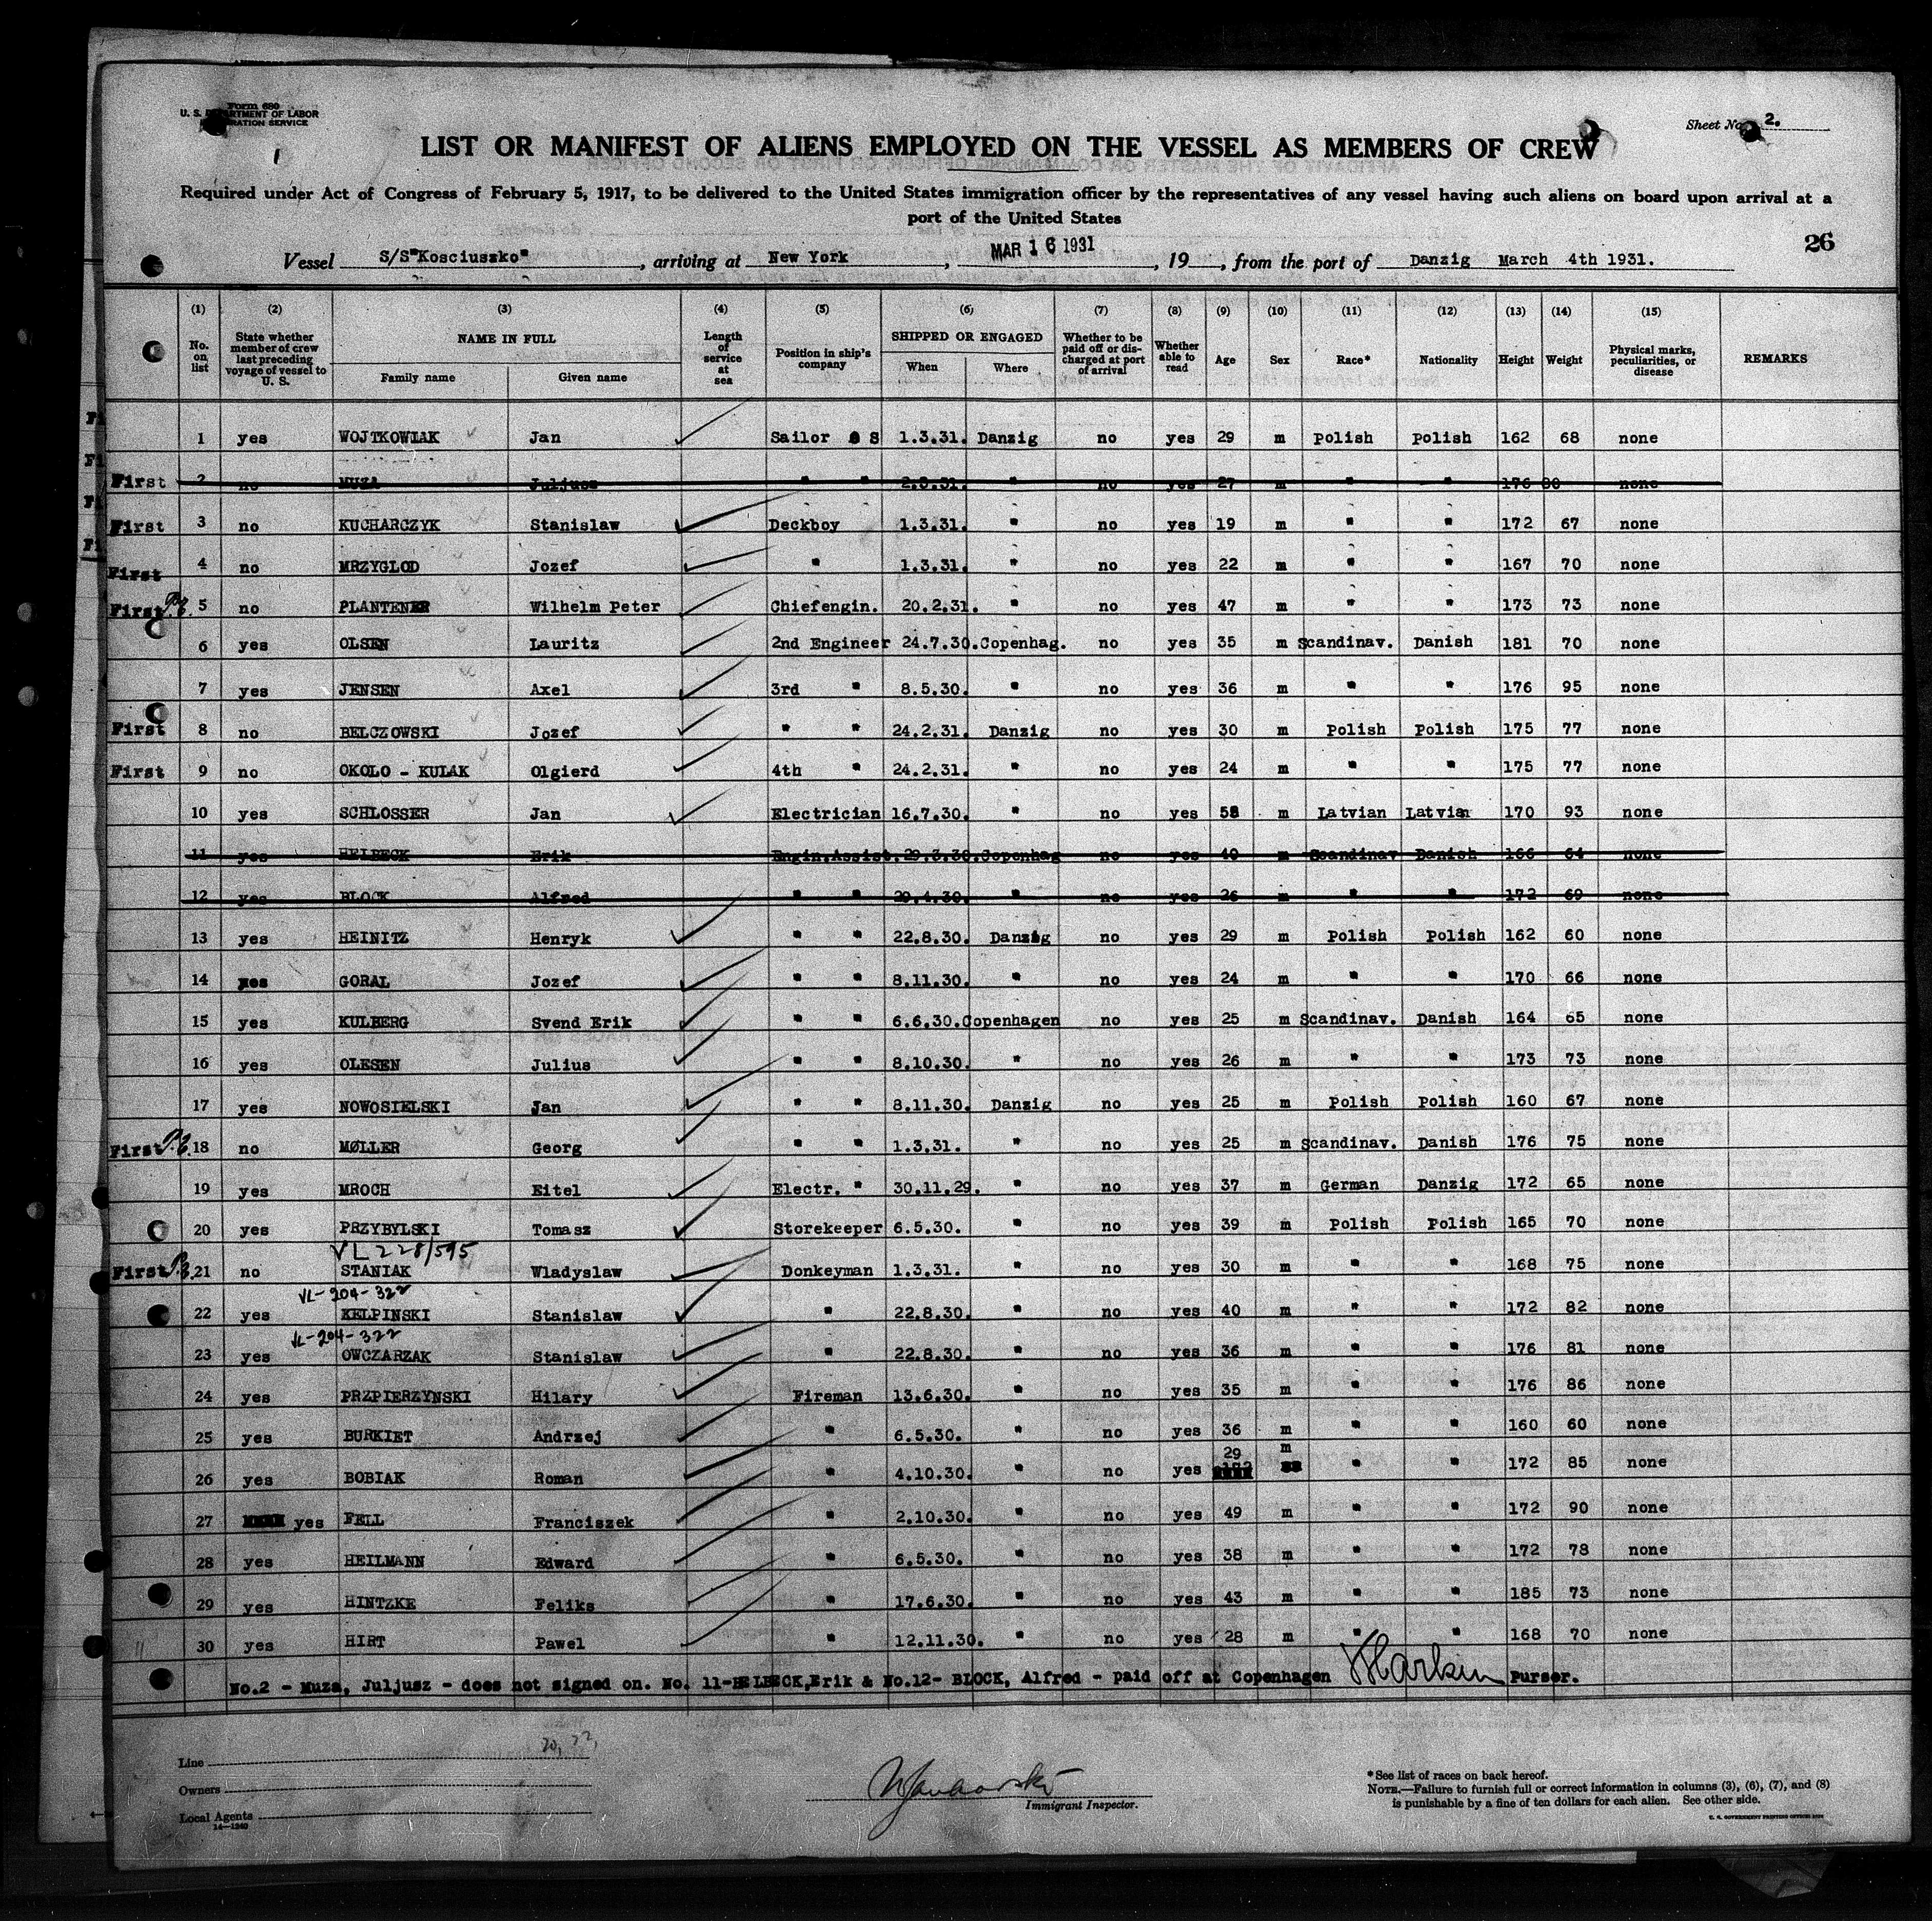 Form 680
U. S. DEPARTMENT OF LABOR
IMMIGRATION SERVICE
Sheet No. 2.
LIST OR MANIFEST OF ALIENS EMPLOYED ON THE VESSEL AS MEMBERS OF CREW
Required under Act of Congress of February 5, 1917, to be delivered to the United States immigration officer by the representatives of any vessel having such aliens on board upon arrival at a
port of the United States
26
Vessel S/S"Kosciuszko", arriving at New York, MAR 16 1931, 19, from the port of Danzig March 4th 1931.
(1) (2) (3) (4) (5) (6) (7) (8) (9) (10) (11) (12) (13) (14) (15)
No. on list State whether member of crew last preceding voyage of vessel to U. S. NAME IN FULL Family name Given name Length of service at sea Position in ship's company SHIPPED OR ENGAGED When Where Whether to be paid off or discharged at port of arrival Whether able to read Age Sex Race* Nationality Height Weight Physical marks, peculiarities, or disease REMARKS
1 yes WOJTKOWIAK Jan Sailor S 1.3.31. Danzig no yes 29 m Polish Polish 162 68 none
First 2 no MUZA Juljusz " " 2.3.31. " no yes 27 m " " 176 80 none
First 3 no KUCHARCZYK Stanislaw Deckboy 1.3.31. " no yes 19 m " " 172 67 none
First 4 no MRZYGLOD Jozef " 1.3.31. " no yes 22 m " " 167 70 none
First 5 no PLANTENER Wilhelm Peter Chiefengin. 20.2.31. " no yes 47 m " " 173 73 none
6 yes OLSEN Lauritz 2nd Engineer 24.7.30. Copenhag. no yes 35 m Scandinav. Danish 181 70 none
7 yes JENSEN Axel 3rd " 8.5.30. " no yes 36 m " " 176 95 none
First 8 no BELCZOWSKI Jozef " " 24.2.31. Danzig no yes 30 m Polish Polish 175 77 none
First 9 no OKOLO - KULAK Olgierd 4th " 24.2.31. " no yes 24 m " " 175 77 none
10 yes SCHLOSSER Jan Electrician 16.7.30. " no yes 58 m Latvian Latvian 170 93 none
11 yes HELBECK Erik Engin.Assist. 29.3.30. Copenhag no yes 40 m Scandinav Danish 166 64 none
12 yes BLOCK Alfred " " 29.4.30. " no yes 26 m " " 172 69 none
13 yes HEINITZ Henryk " " 22.8.30. Danzig no yes 29 m Polish Polish 162 60 none
14 yes GORAL Jozef " " 8.11.30. " no yes 24 m " " 170 66 none
15 yes KULBERG Svend Erik " " 6.6.30. Copenhagen no yes 25 m Scandinav. Danish 164 65 none
16 yes OLESEN Julius " " 8.10.30. " no yes 26 m " " 173 73 none
17 yes NOWOSIELSKI Jan " " 8.11.30. Danzig no yes 25 m Polish Polish 160 67 none
First 18 no MØLLER Georg " " 1.3.31. " no yes 25 m Scandinav. Danish 176 75 none
19 yes MROCH Eitel Electr. " 30.11.29. " no yes 37 m German Danzig 172 65 none
20 yes PRZYBYLSKI Tomasz Storekeeper 6.5.30. " no yes 39 m Polish Polish 165 70 none
VL 228/595
First 21 no STANIAK Wladyslaw Donkeyman 1.3.31. " no yes 30 m " " 168 75 none
VL-204-322
22 yes KELPINSKI Stanislaw " 22.8.30. " no yes 40 m " " 172 82 none
VL-204-322
23 yes OWCZARZAK Stanislaw " 22.8.30. " no yes 36 m " " 176 81 none
24 yes PRZPIERZYNSKI Hilary Fireman 13.6.30. " no yes 35 m " " 176 86 none
25 yes BURKIET Andrzej " 6.5.30. " no yes 36 m " " 160 60 none
26 yes BOBIAK Roman " 4.10.30. " no yes 29 m " " 172 85 none
27 yes FELL Franciszek " 2.10.30. " no yes 49 m " " 172 90 none
28 yes HEILMANN Edward " 6.5.30. " no yes 38 m " " 172 78 none
29 yes HINTZKE Feliks " 17.6.30. " no yes 43 m " " 185 73 none
30 yes HIRT Pawel " 12.11.30. " no yes 28 m " " 168 70 none
No.2 - Muza, Juljusz - does not signed on. No. 11-HELBECK,Erik & No.12- BLOCK, Alfred - paid off at Copenhagen Purser.
Line
Owners
Local Agents
14-1240
Immigrant Inspector.
*See list of races on back hereof.
NOTE.—Failure to furnish full or correct information in columns (3), (6), (7), and (8)
is punishable by a fine of ten dollars for each alien. See other side.